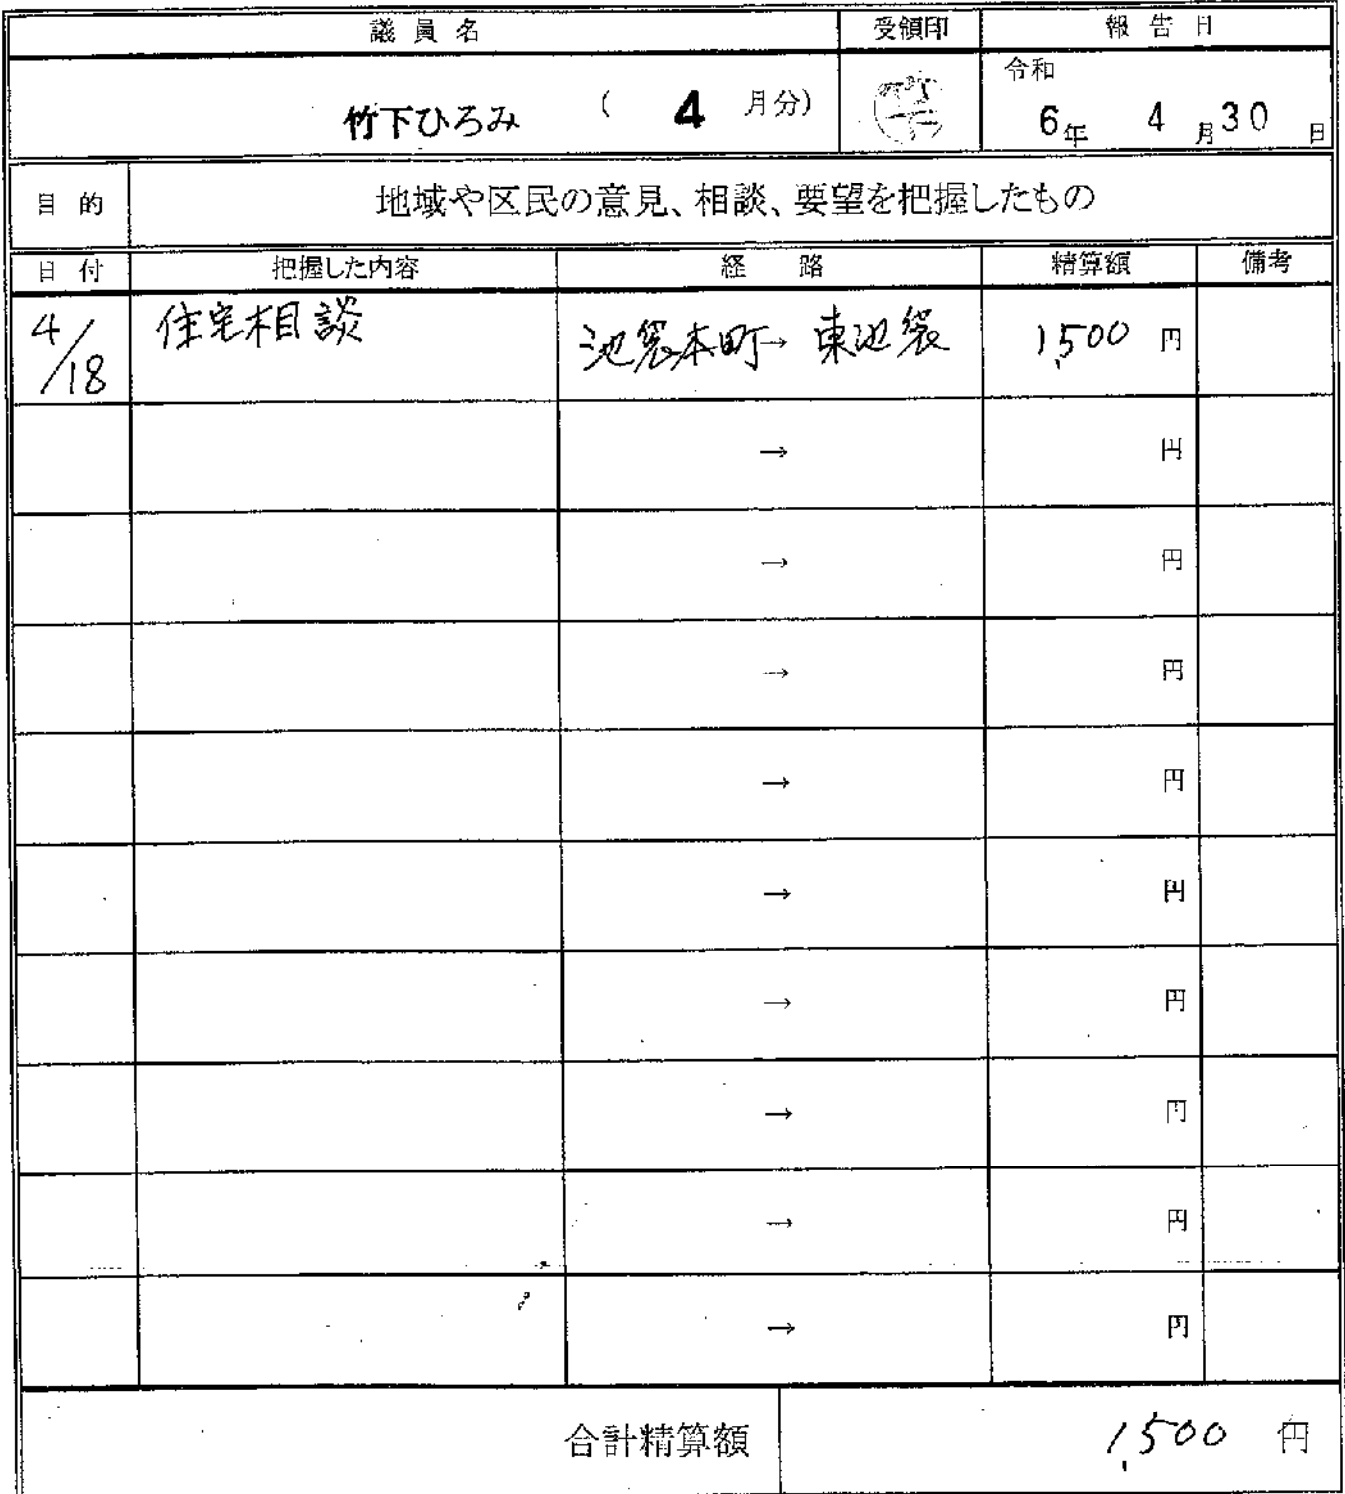 議員名 受領印 報告日
竹下ひろみ ( 4 月分) 令和 6年 4月30日
目的 地域や区民の意見、相談、要望を把握したもの
日付 把握した内容 経路 精算額 備考
4/18 住宅相談 池袋本町→東池袋 1,500 円
→ 円
→ 円
→ 円
→ 円
→ 円
→ 円
→ 円
→ 円
→ 円
合計精算額 1,500 円